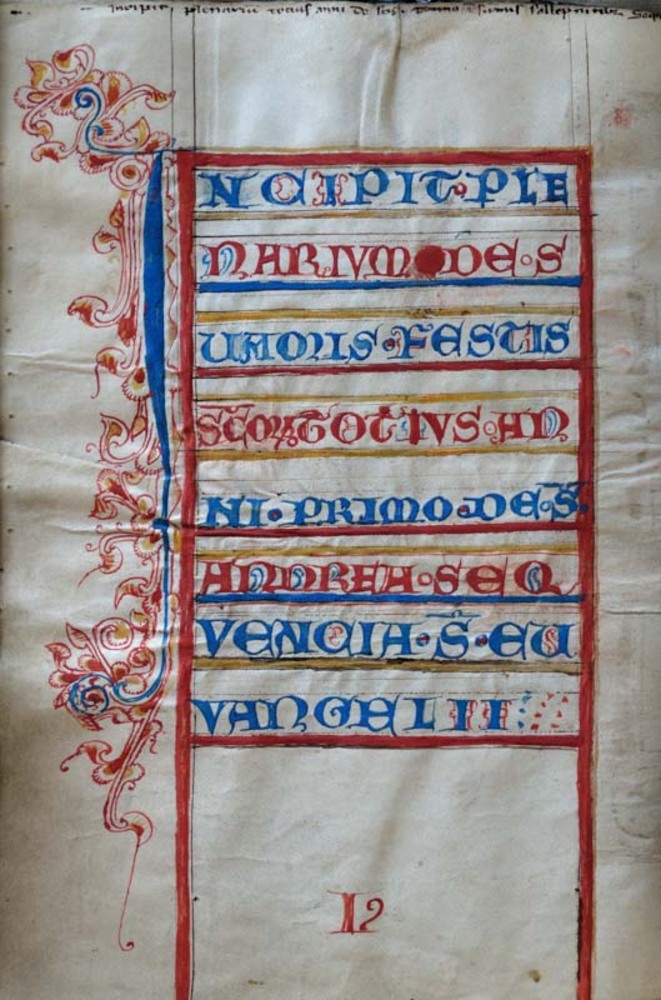 Incipit plenariu totius anni de scs. primo
INCIPIT·PLE
NARIVM·DE·S
UMMIS·FESTIS
SCOꝜ TOTIVS·AN
NI·PRIMO·DE·S̄.
ANDREA·SEQ
VENCIA·S̄·EU
VANGELII
I2